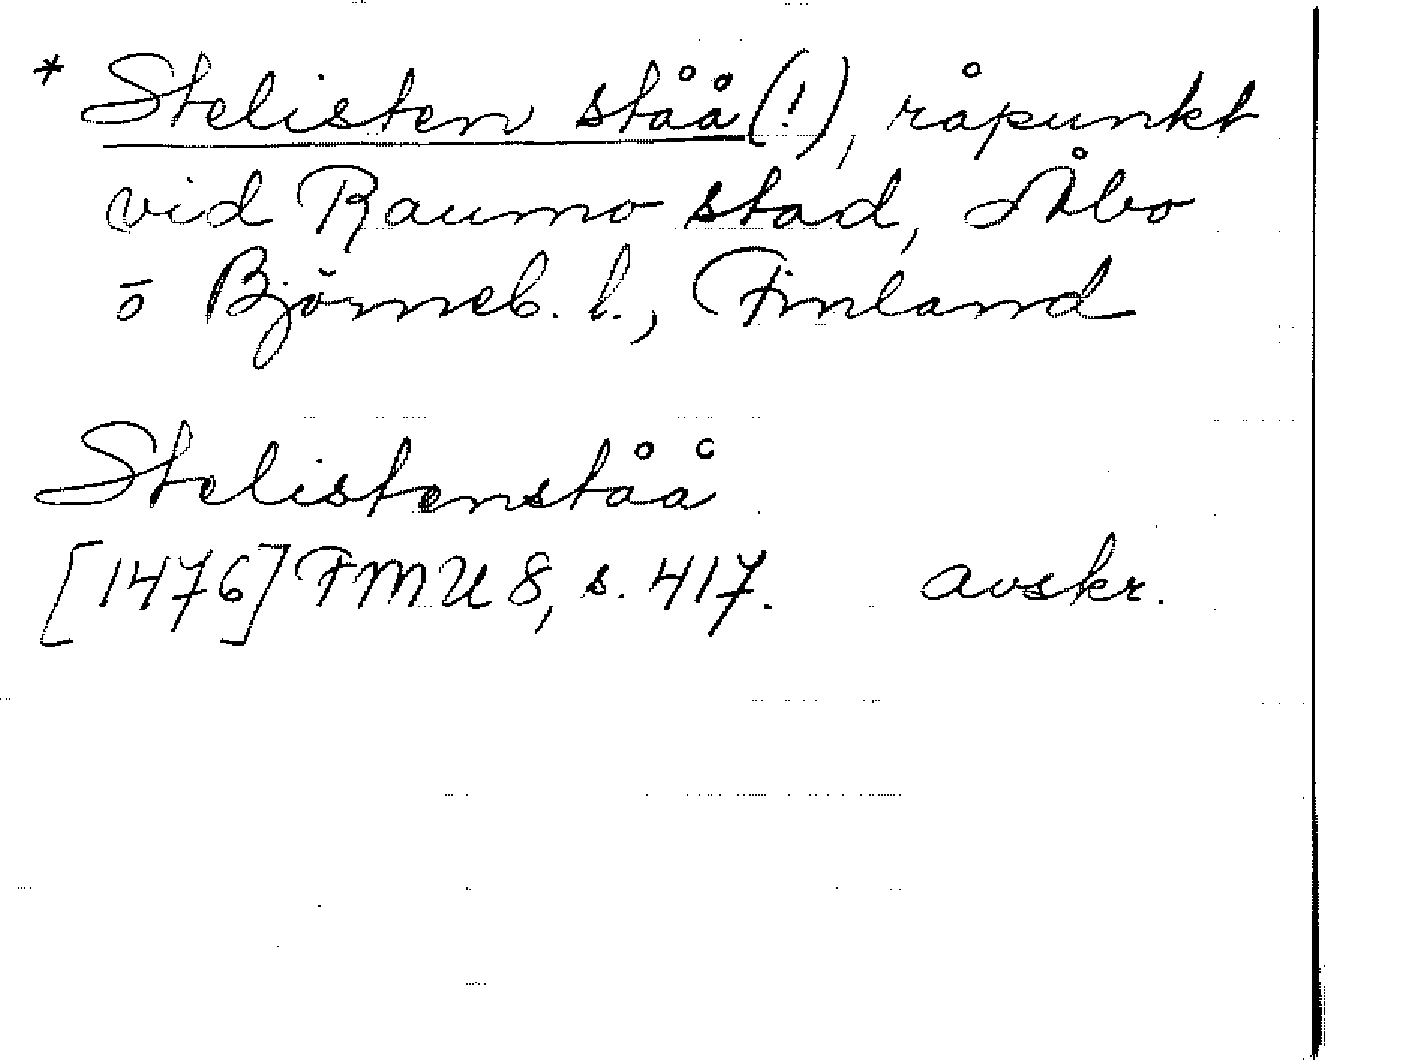 * Stelisten ståå (!), råpunkt
vid Raumo stad, Åbo
o̅ Björneb. l., Finland
Stelistenståå
[1476] FMU 8, s. 417. avskr.